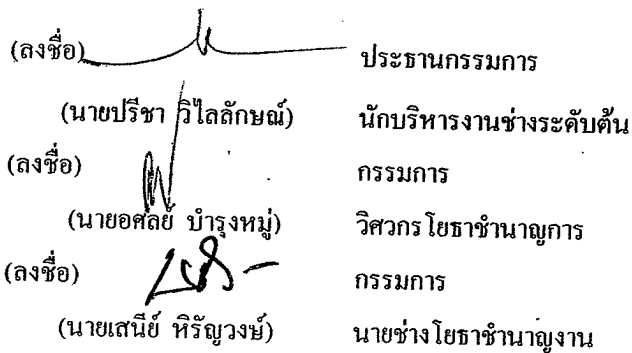 (ลงชื่อ) ประธานกรรมการ
(นายปรีชา วิไลลักษณ์) นักบริหารงานช่างระดับต้น
(ลงชื่อ) กรรมการ
(นายอศัลย์ บำรุงหมู่) วิศวกรโยธาชำนาญการ
(ลงชื่อ) กรรมการ
(นายเสนีย์ หิรัญวงษ์) นายช่างโยธาชำนาญงาน